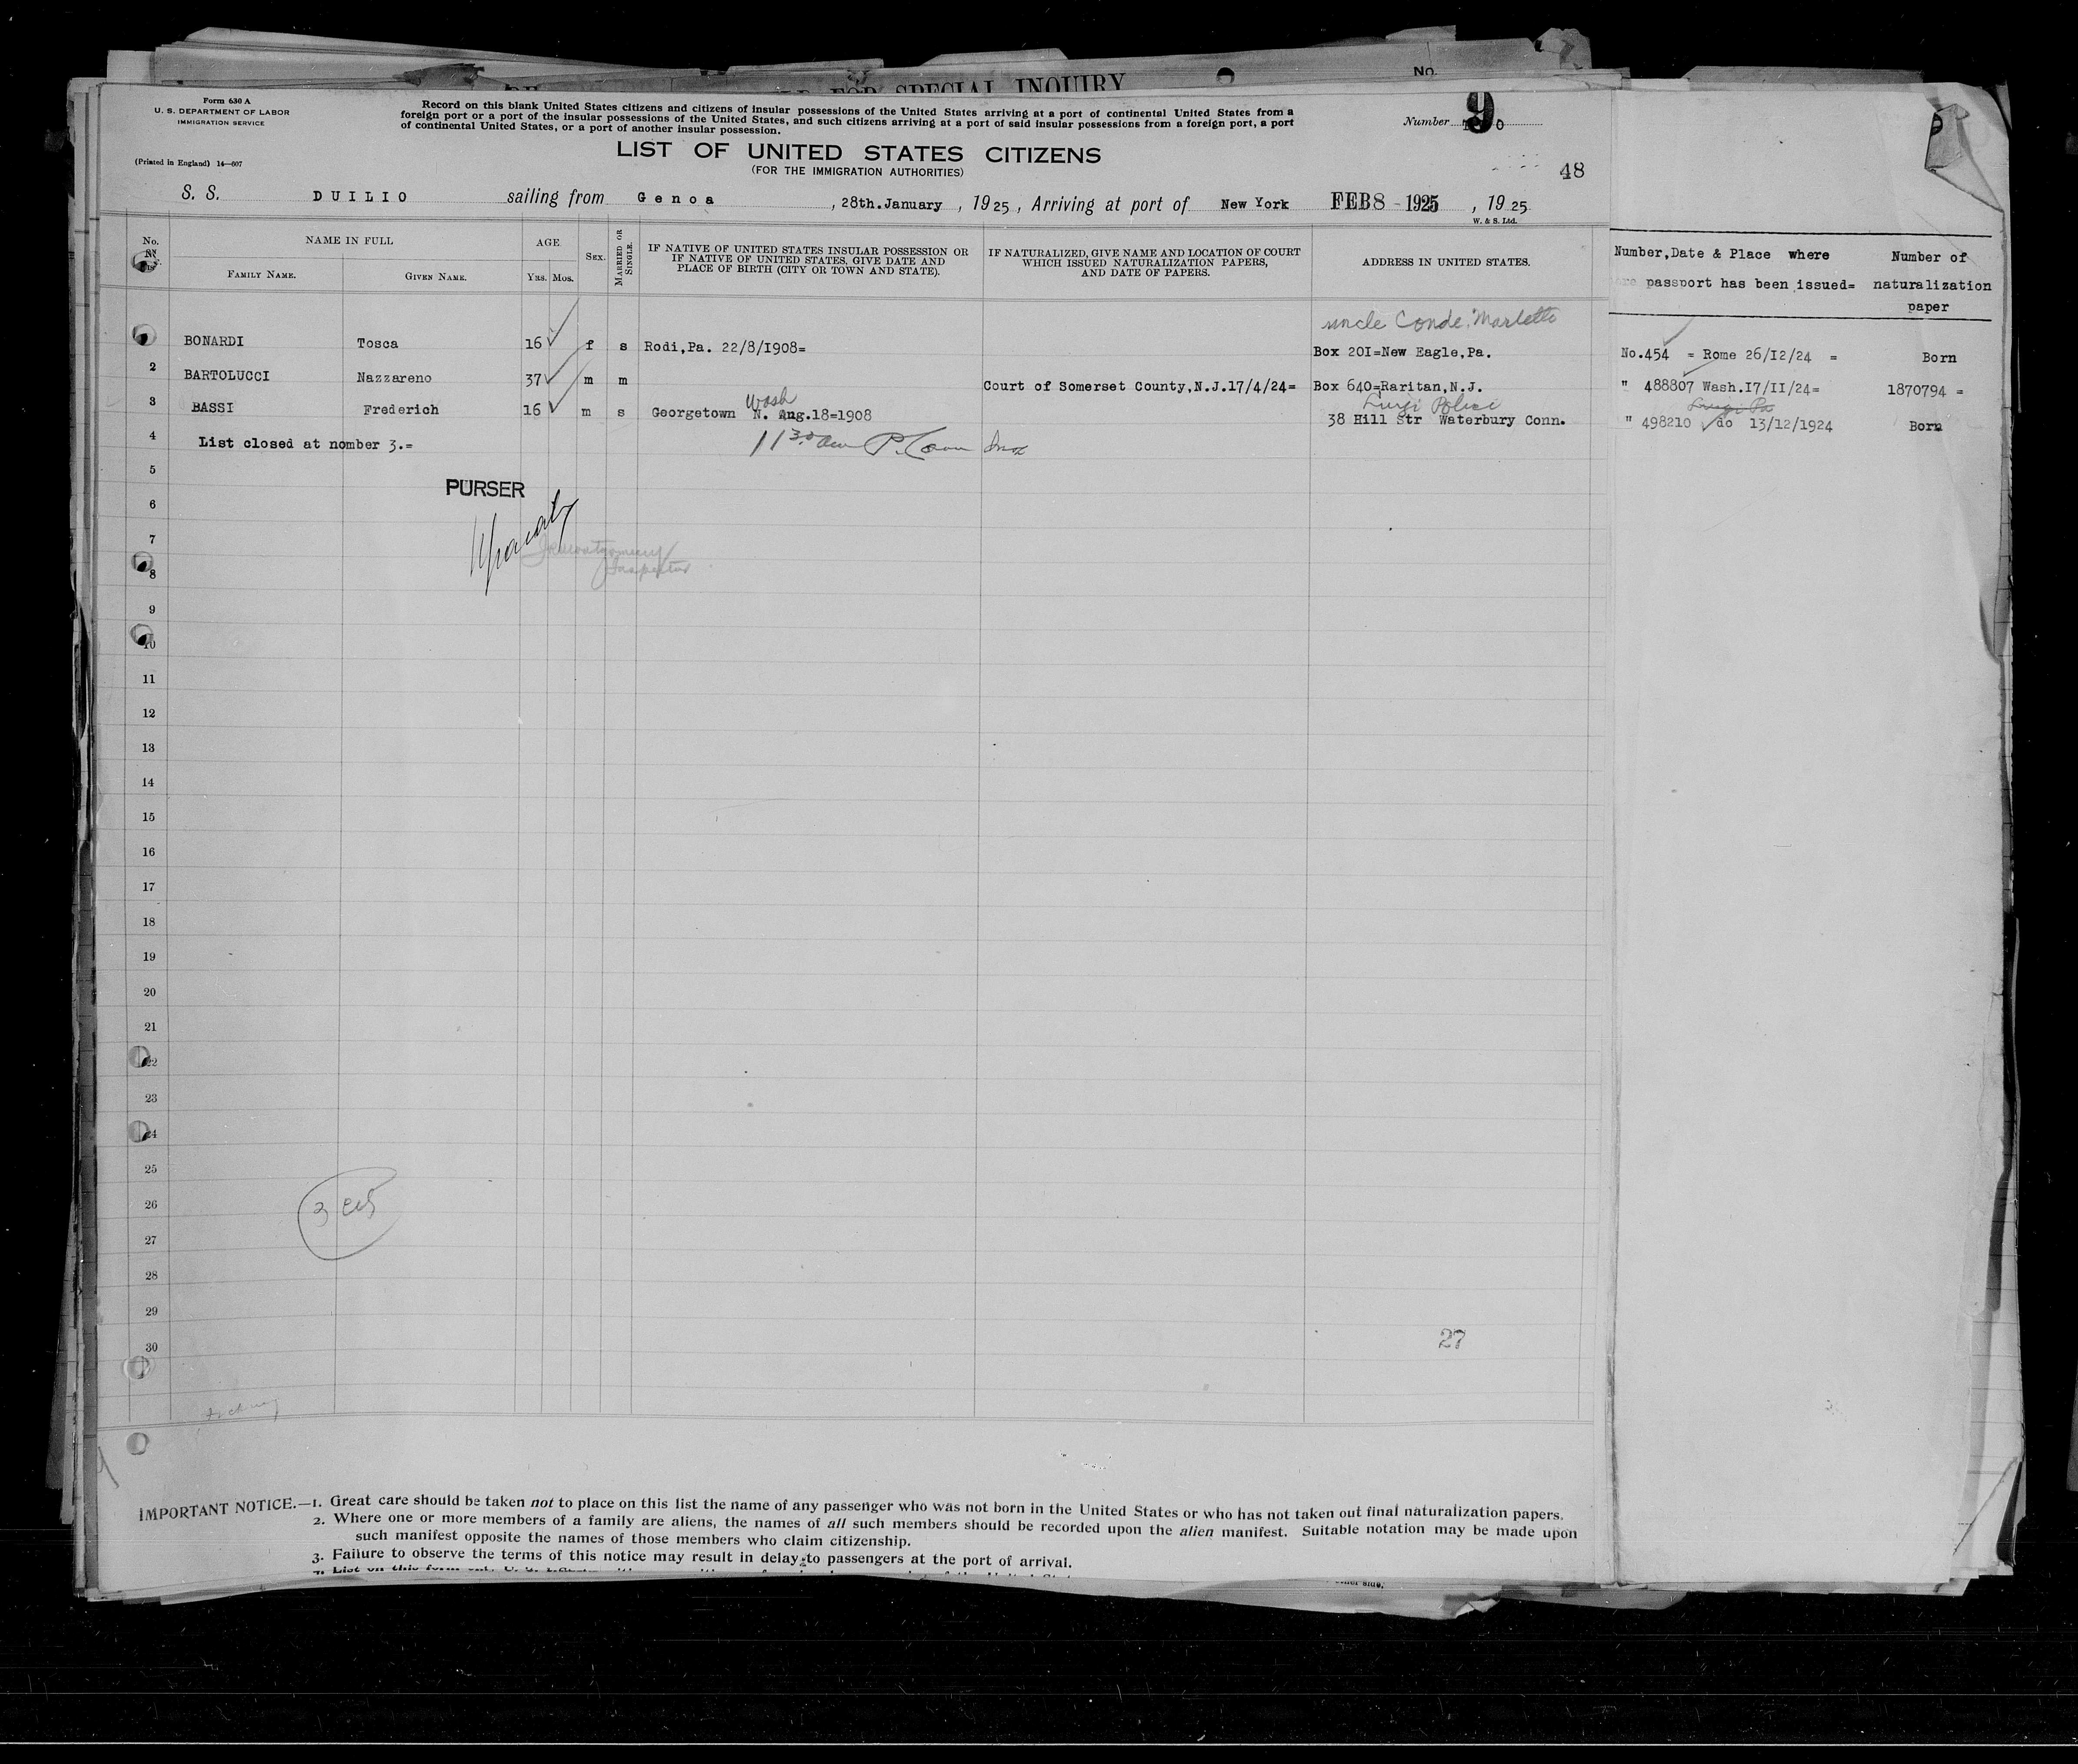 FOR SPECIAL INQUIRY
No.
Form 630 A
U. S. DEPARTMENT OF LABOR
IMMIGRATION SERVICE
(Printed in England) 14—607
Record on this blank United States citizens and citizens of insular possessions of the United States arriving at a port of continental United States from a
foreign port or a port of the insular possessions of the United States, and such citizens arriving at a port of said insular possessions from a foreign port, a port
of continental United States, or a port of another insular possession.
Number 9
LIST OF UNITED STATES CITIZENS
(FOR THE IMMIGRATION AUTHORITIES)
48
S. S. DUILIO sailing from Genoa, 28th.January, 1925, Arriving at port of New York FEB 8 - 1925, 1925
W. & S. Ltd.
No. NAME IN FULL AGE. SEX. MARRIED OR SINGLE. IF NATIVE OF UNITED STATES INSULAR POSSESSION OR IF NATIVE OF UNITED STATES, GIVE DATE AND PLACE OF BIRTH (CITY OR TOWN AND STATE). IF NATURALIZED, GIVE NAME AND LOCATION OF COURT WHICH ISSUED NATURALIZATION PAPERS, AND DATE OF PAPERS. ADDRESS IN UNITED STATES. Number,Date & Place where passport has been issued= Number of naturalization paper
FAMILY NAME. GIVEN NAME. Yrs. Mos.
uncle Conde
BONARDI Tosca 16 f s Rodi,Pa. 22/8/1908= Box 20I=New Eagle,Pa. No.454 = Rome 26/I2/24 = Born
2 BARTOLUCCI Nazzareno 37 m m Court of Somerset County,N.J.17/4/24= Box 640=Raritan,N.J. " 488807 Wash.I7/II/24= 1870794 =
Wash Luigi
3 BASSI Frederich 16 m s Georgetown N. Aug.18=1908 38 Hill Str Waterbury Conn. " 498210 do 13/12/1924 Born
4 List closed at nomber 3.= 11 30 am
5
PURSER
6
7
8
Inspector
9
10
11
12
13
14
15
16
17
18
19
20
21
22
23
24
25
26
3
27
28
29
30
27
IMPORTANT NOTICE.—1. Great care should be taken not to place on this list the name of any passenger who was not born in the United States or who has not taken out final naturalization papers.
2. Where one or more members of a family are aliens, the names of all such members should be recorded upon the alien manifest. Suitable notation may be made upon
such manifest opposite the names of those members who claim citizenship.
3. Failure to observe the terms of this notice may result in delay to passengers at the port of arrival.